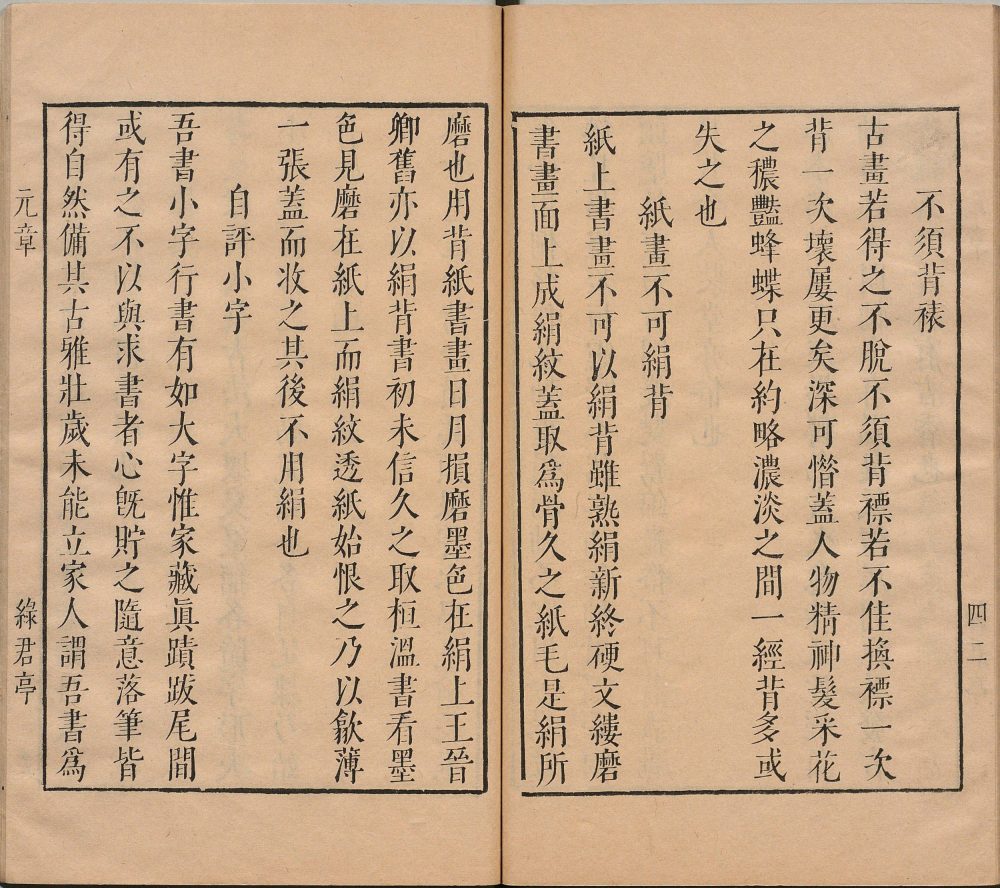 不須背裱
古畫若得之不脫不須背褾若不佳換褾一次
背一次壞屢更矣深可惜蓋人物精神髮采花
之穠豔蜂蝶只在約略濃淡之間一經背多或
失之也
紙畫不可絹背
紙上書畫不可以絹背雖熟絹新終硬文縷磨
書畫面上成絹紋蓋取爲骨久之紙毛是絹所
四二
磨也用背紙書畫日月損磨墨色在絹上王晉
卿舊亦以絹背書初未信久之取桓溫書看墨
色見磨在紙上而絹紋透紙始恨之乃以歙薄
一張蓋而收之其後不用絹也
自評小字
吾書小字行書有如大字惟家藏眞蹟跋尾間
或有之不以與求書者心旣貯之隨意落筆皆
得自然備其古雅壯歲未能立家人謂吾書爲
元章
綠君亭